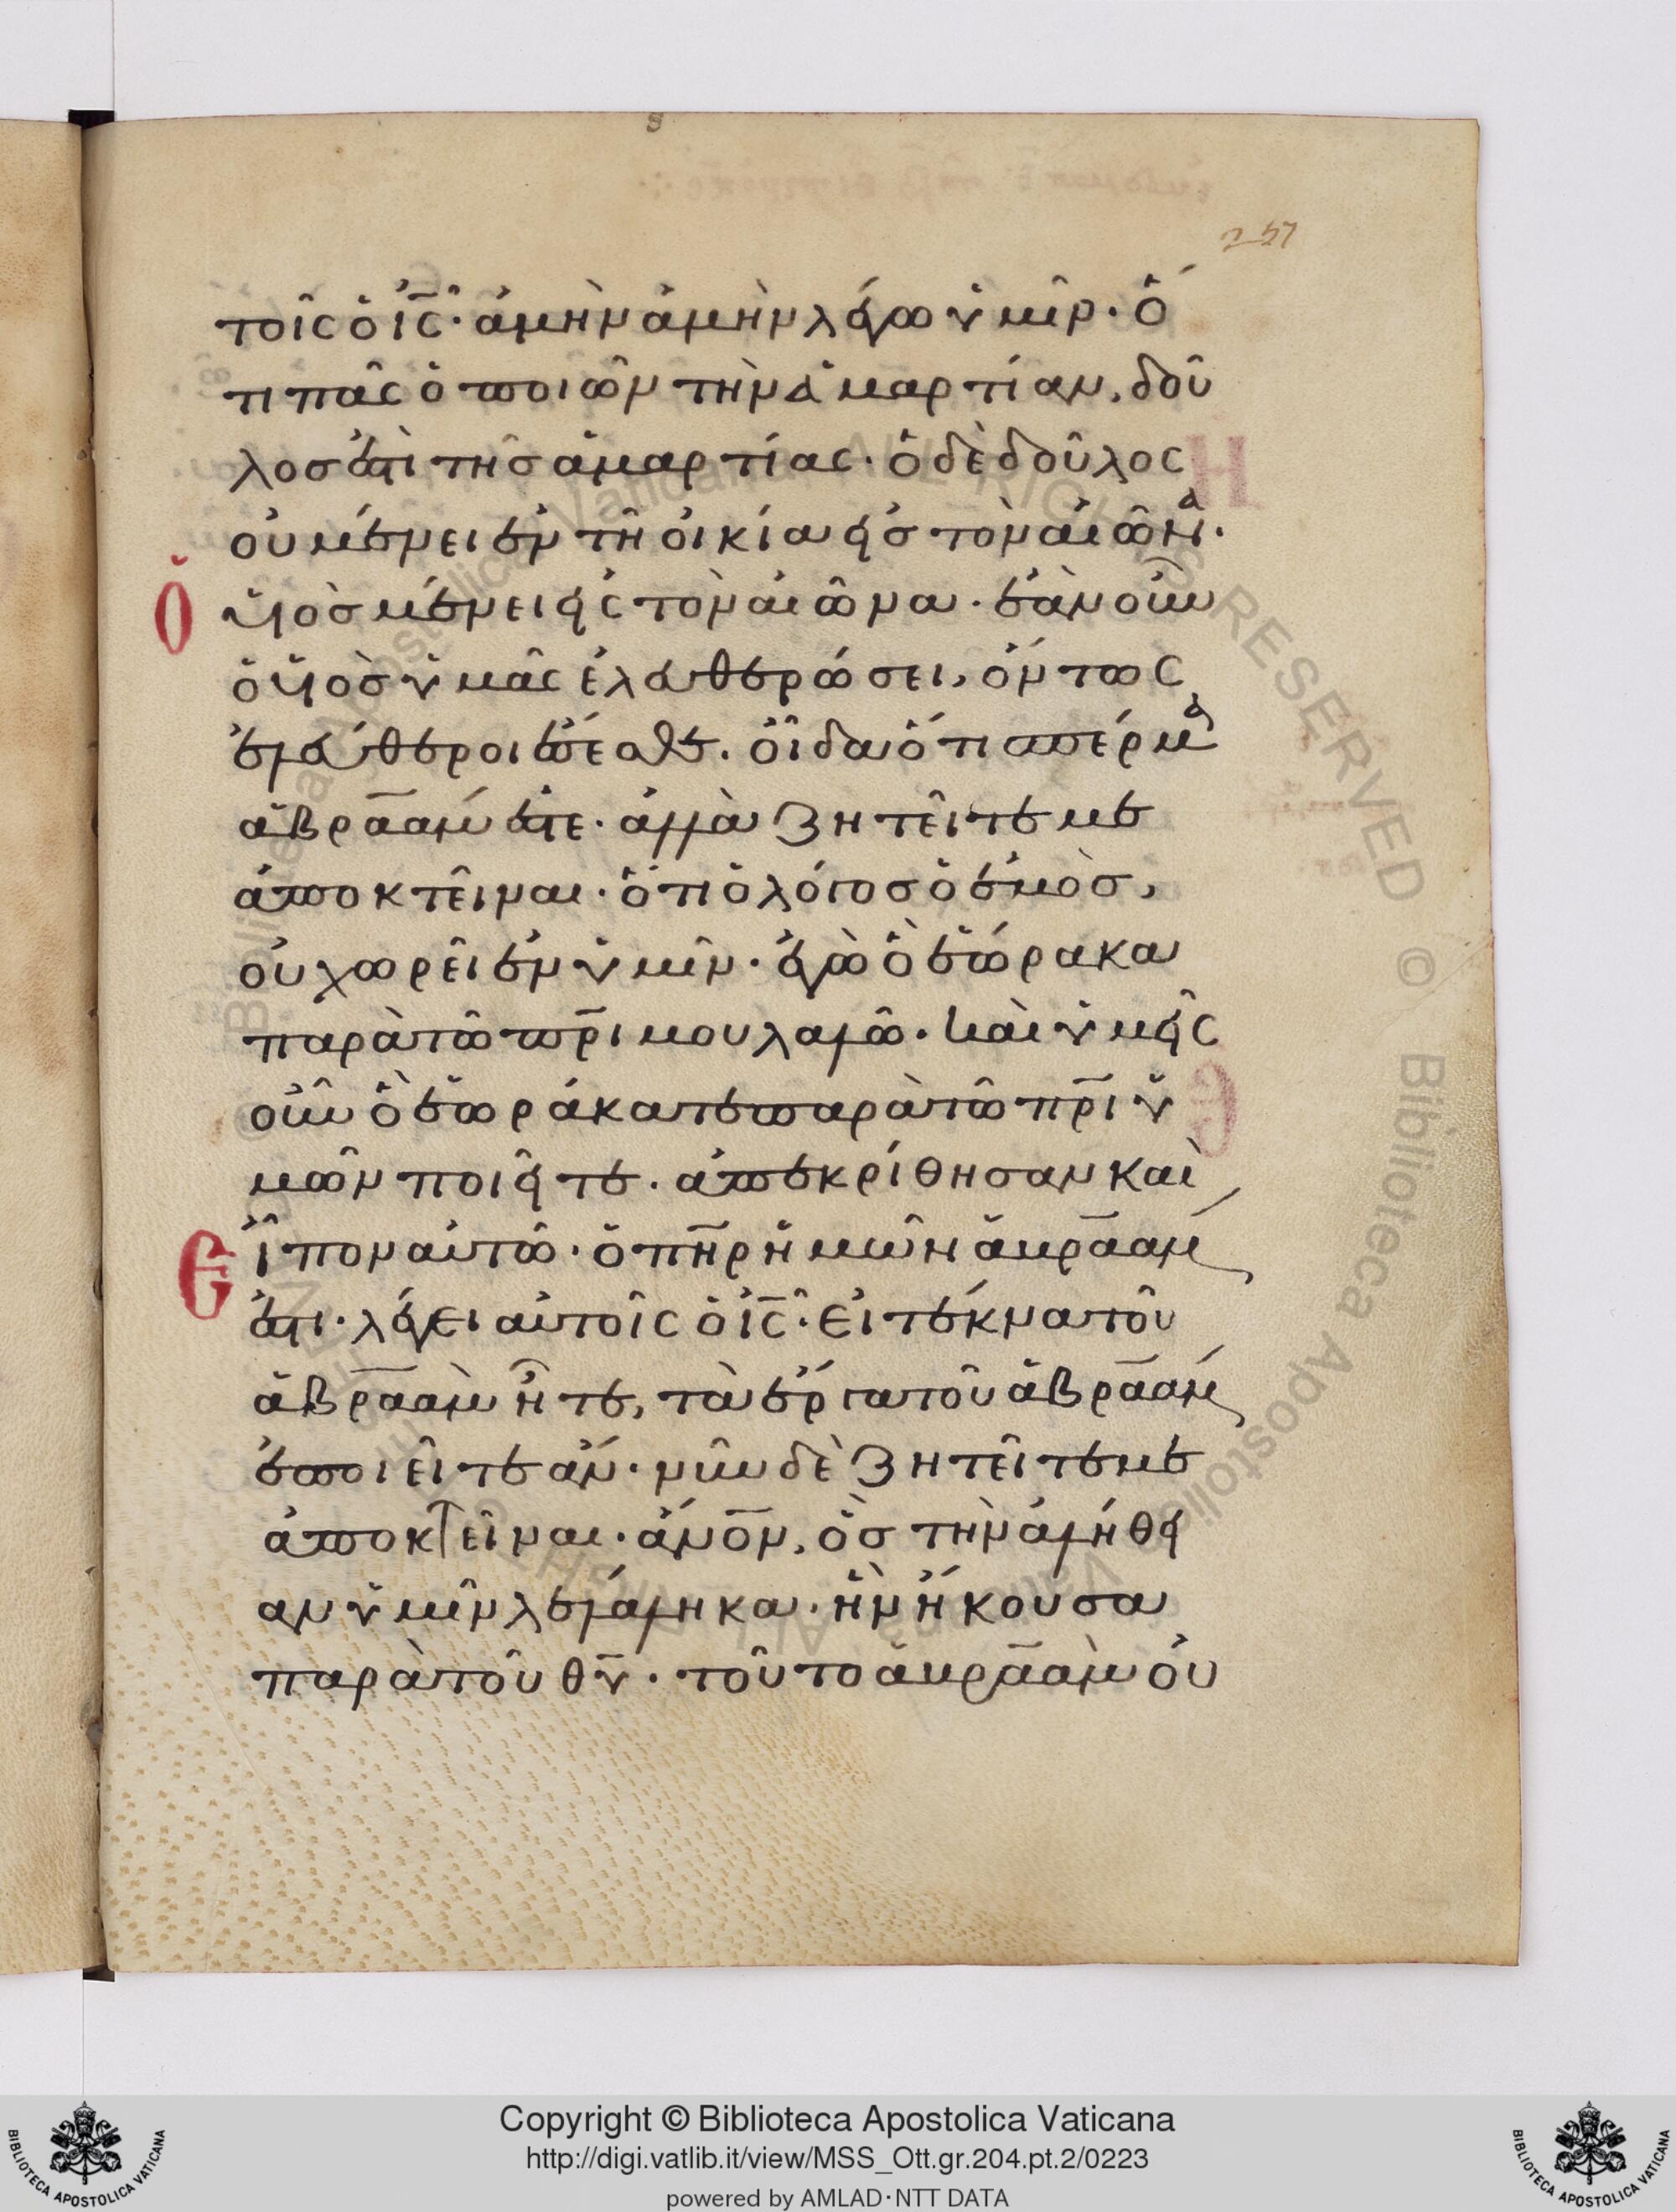 257
τοῖς ὁ ἰς̅· ἀμὴν ἀμὴν λέγω ὑμῖν· ὅ
τι πᾶς ὁ ποιῶν τὴν ἁμαρτίαν, δοῦ
λος ἐστὶ τῆς ἁμαρτίας· ὁ δὲ δοῦλος
οὐ μένει ἐν τῆ οἰκία εἰς τὸν αἰῶνα·
Ὁ υἱὸς μένει εἰς τὸν αἰῶνα· ἐὰν οὖν
ὁ υἱὸς ὑμᾶς ἐλευθερώσει, ὄντως
ἐλεύθεροι ἔσεσθε. οἶδα ὅτι σπέρμα
ἀβραάμ ἐστε· ἀλλὰ ζητεῖτέ με
ἀποκτεῖναι· ὅτι ὁ λόγος ὁ ἐμὸς,
οὐ χωρεῖ ἐν ὑμῖν· ἐγὼ ὃ ἑώρακα
παρὰ τῶ π̅ρ̅ι μου λαλῶ· καὶ ὑμεῖς
οὖν ὃ ἑωράκατε παρὰ τῶ π̅ρ̅ι ὑ
μῶν ποιεῖτε. ἀπεκρίθησαν καὶ
Εἶπον αὐτῶ· ὁ π̅η̅ρ ἡμῶν ἀβραάμ
ἐστι· λέγει αὐτοῖς ὁ ἰς̅· εἰ τέκνα τοῦ
ἀβραὰμ ἦτε, τὰ ἔργα τοῦ ἀβραάμ
ἐποιεῖτε ἄν· νῦν δὲ ζητεῖτέ με
ἀποκτεῖναι· ἄν̅ο̅ν, ὃς τὴν ἀλήθει
αν ὑμῖν λελάληκα· ἣν ἤκουσα
παρὰ τοῦ θ̅υ̅· τοῦτο ἀβραὰμ οὐ
Copyright © Biblioteca Apostolica Vaticana
http://digi.vatlib.it/view/MSS_Ott.gr.204.pt.2/0223
powered by AMLAD·NTT DATA
BIBLIOTECA APOSTOLICA VATICANA
BIBLIOTECA APOSTOLICA VATICANA